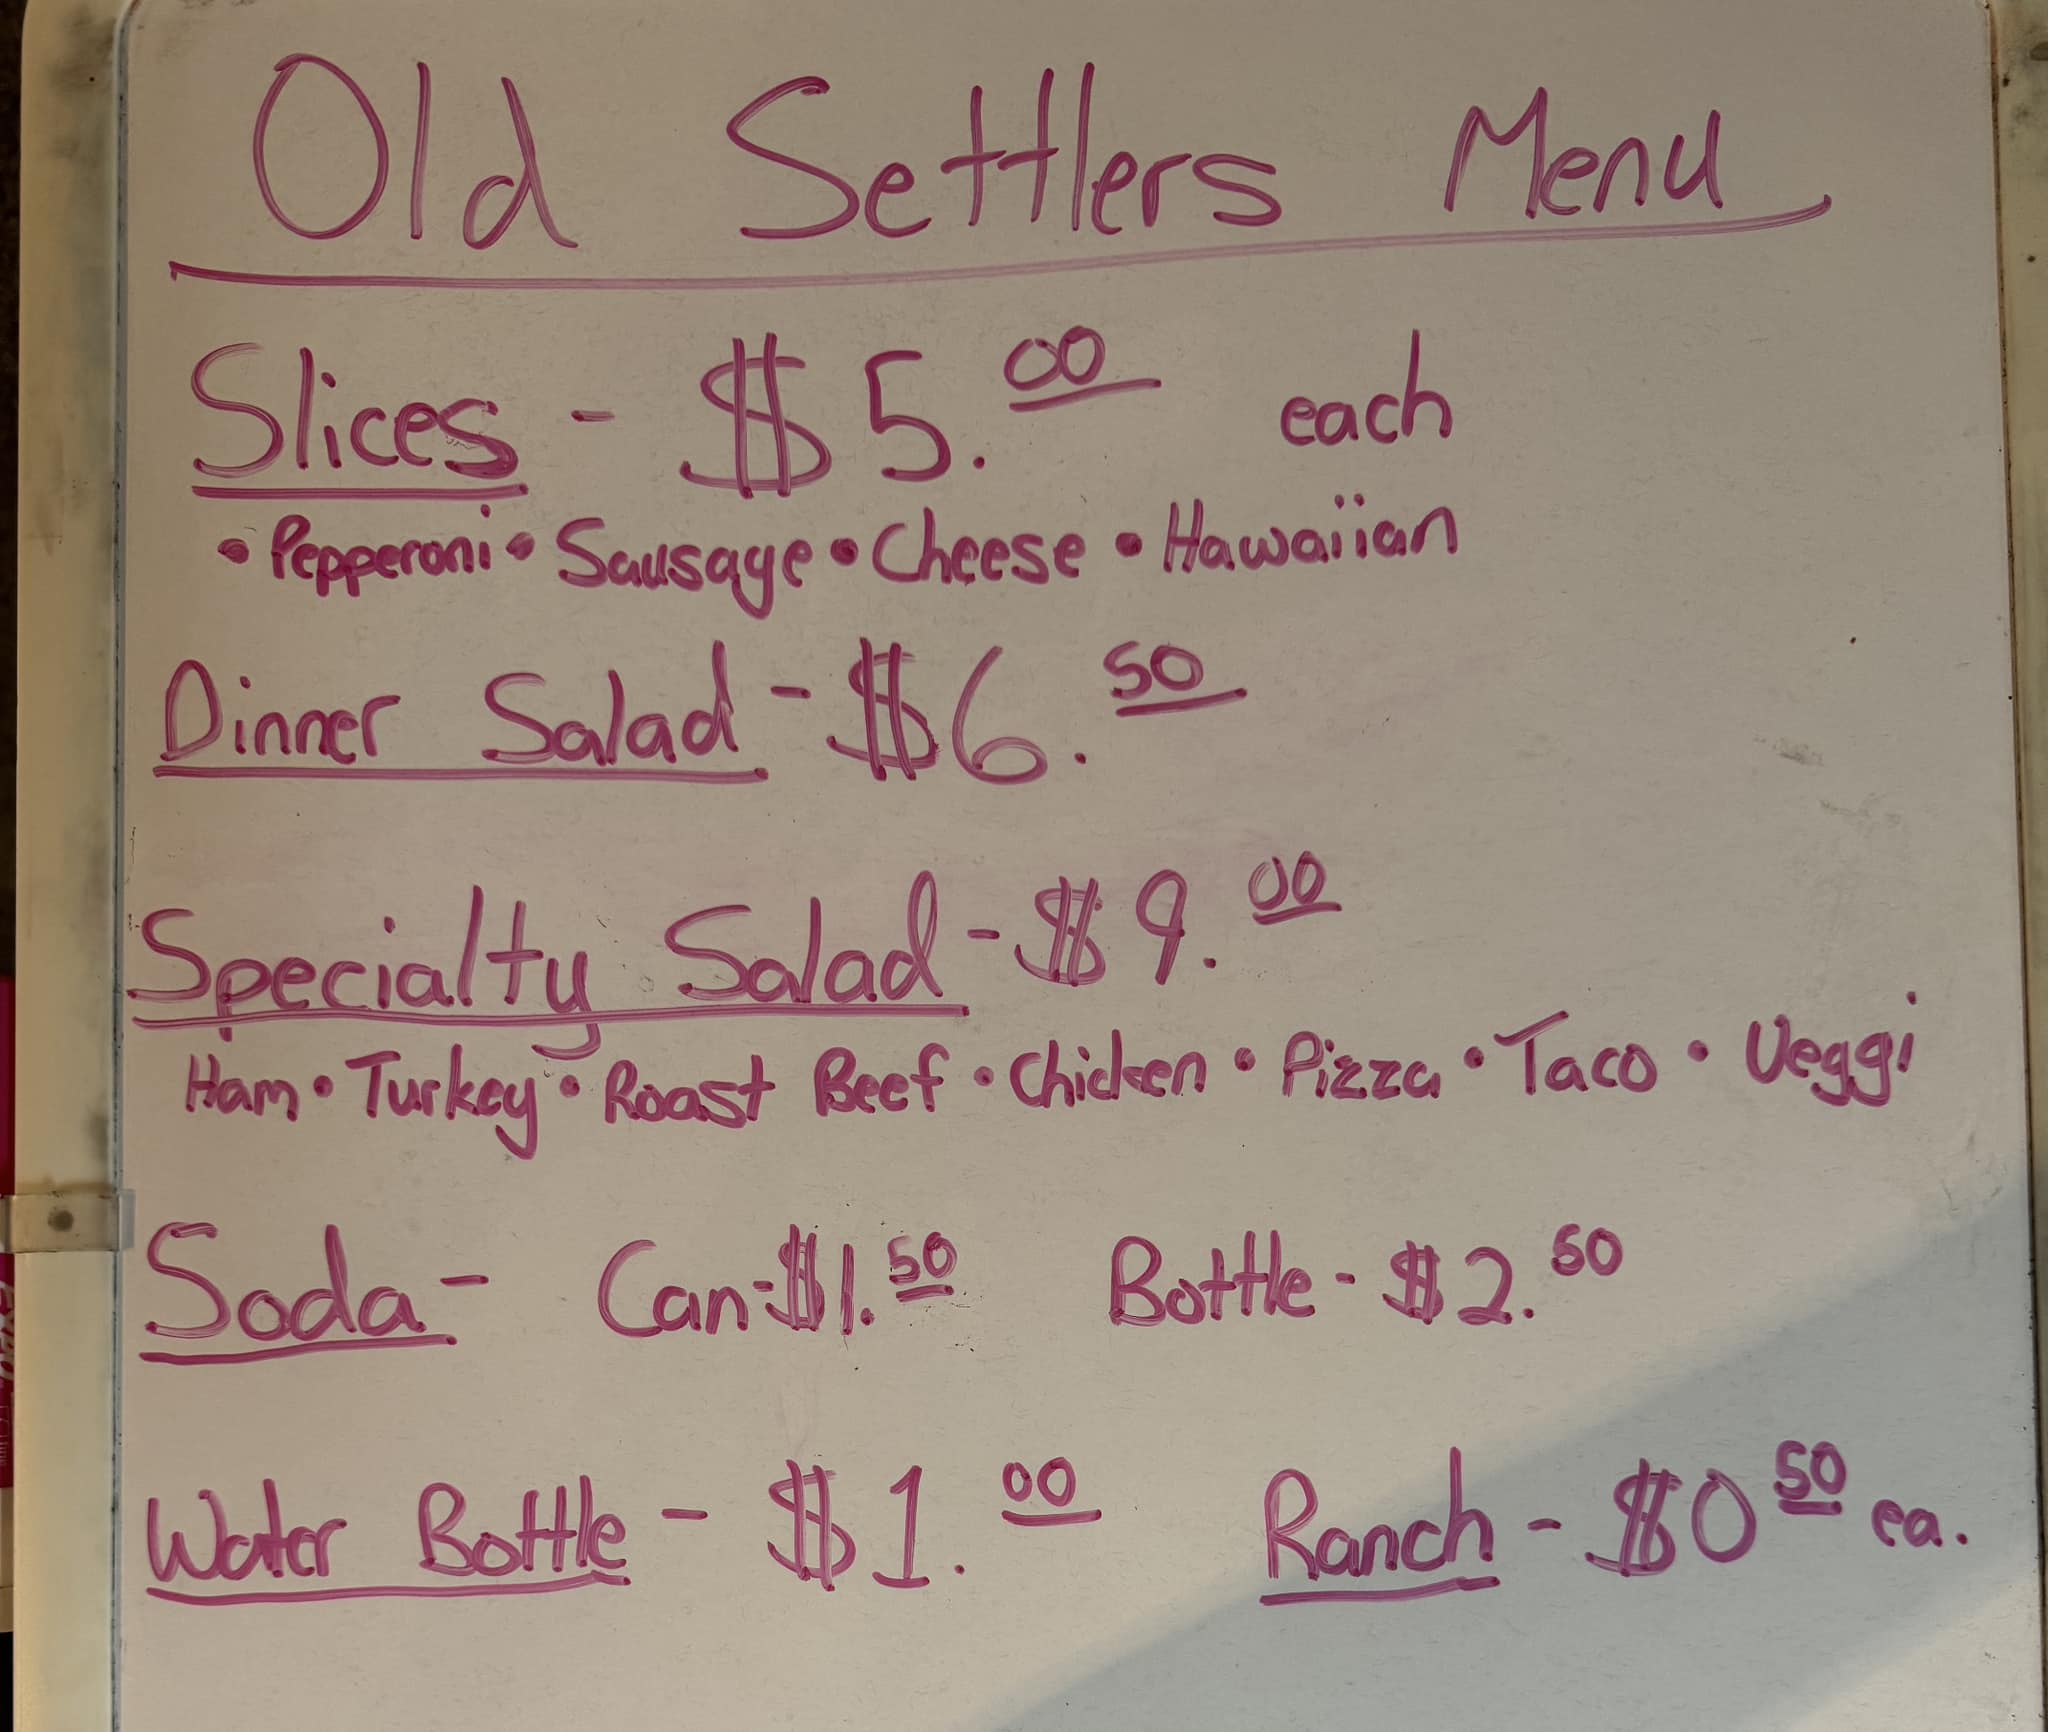 Old Settlers Menu
Slices - $5.00 each
• Pepperoni • Sausage • Cheese • Hawaiian
Dinner Salad - $6.50
Specialty Salad - $9.00
Ham • Turkey • Roast Beef • Chicken • Pizza • Taco • Veggi
Soda - Can - $1.50 Bottle - $2.50
Water Bottle - $1.00 Ranch - $0 50 ea.